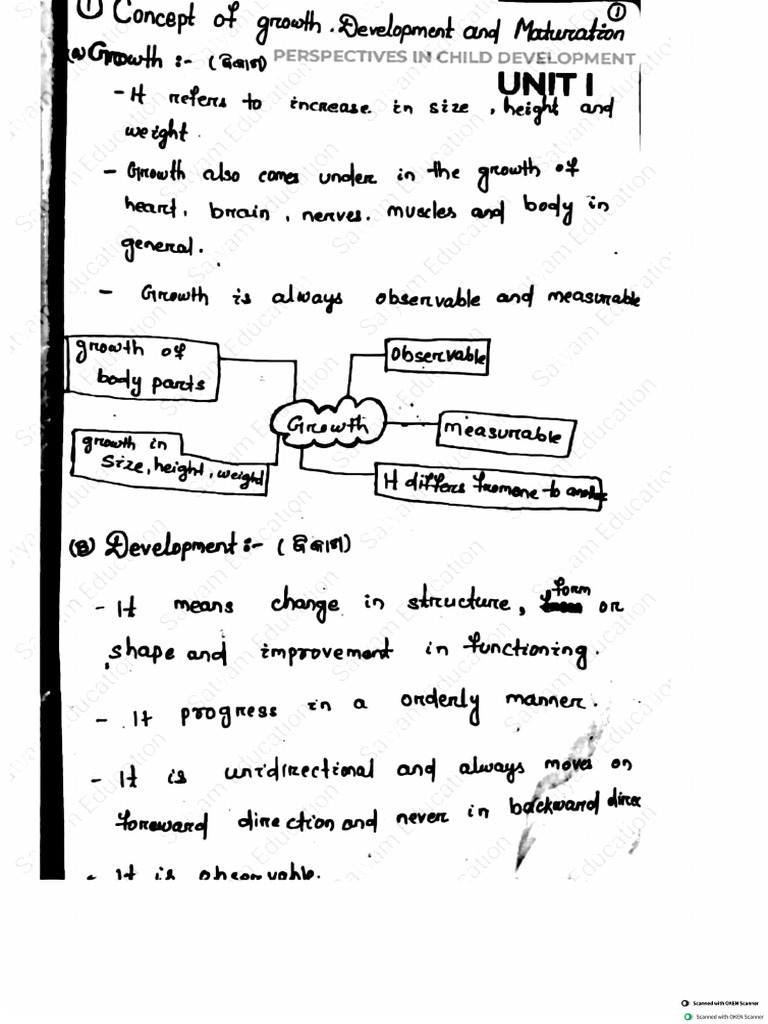 ① Concept of growth. Development and Maturation ①
PERSPECTIVES IN CHILD DEVELOPMENT
UNIT I
(A) Growth :-
- It refers to increase in size, height and
weight.
- Growth also comes under in the growth of
heart, brain, nerves. muscles and body in
general.
- Growth is always observable and measurable
growth of
body parts
observable
Growth
measurable
growth in
size, height, weight
It differs from one to another
(B) Development :- (ବିକାଶ)
- It means change in structure, form or
shape and improvement in functioning.
- It progress in a orderly manner.
- It is unidirectional and always moves on
foreward direction and never in backward direc
- It is observable.
Satyam Education
Scanned with OKEN Scanner
Scanned with OKEN Scanner